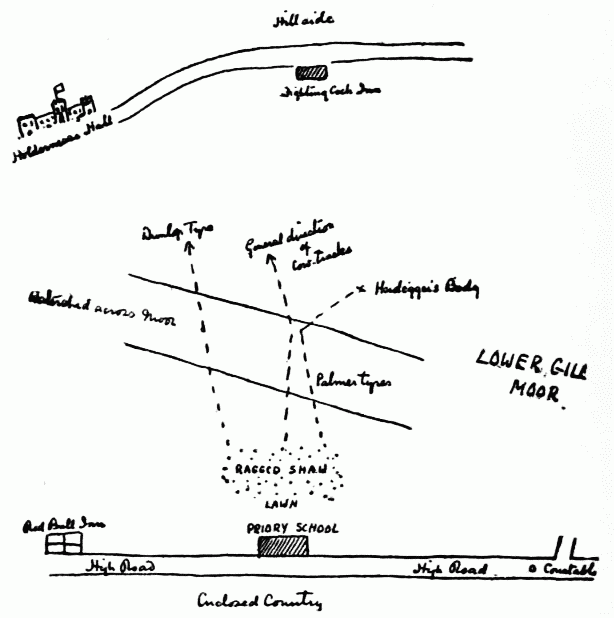 Hillside
Fighting Cock Inn
Holdernesse Hall
Dunlop Tyre
General direction
of
Cow-tracks
Heidegger's Body
Watershed across moor
LOWER GILL
MOOR.
Palmer tyres
RAGGED SHAW
LAWN
PRIORY SCHOOL
Red Bull Inn
High Road
High Road
Constable
Enclosed Country